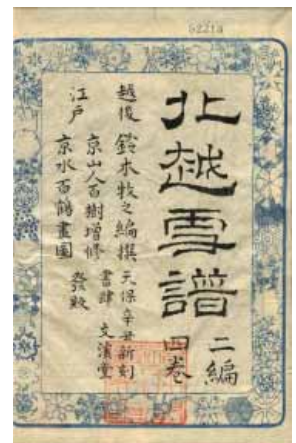 52213
北越雪譜
二編
四巻
越後 鈴木牧之編撰
京山人百樹増修
江戸 京水百鶴畫圖
天保辛丑新刻
書肆 文溪堂
發販